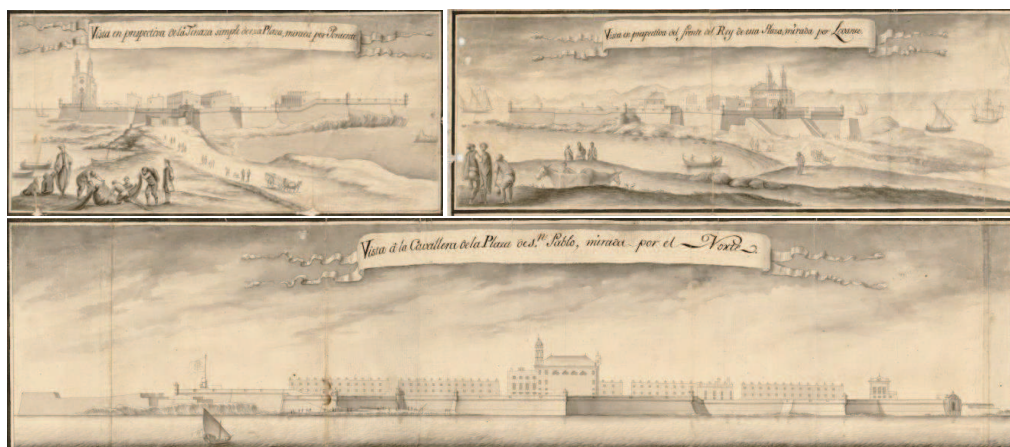 Vista en perspectiva de la Tenaza simple de esta Plaza, mirada por Poniente.
Vista en perspectiva del frente del Rey de esta Plaza, mirada por Levante.
Vista â la Cavallera de la Plaza de S.n Pablo, mirada por el Norte